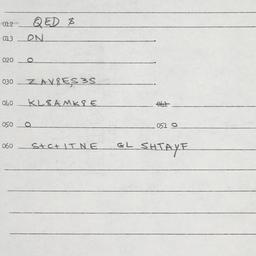 012 QED 8
013 ON
020 0
030 ZAV8ES3S
040 KL8AMK8E 041
050 0 051 0
060 S+C+ITNE GL SHTAYF